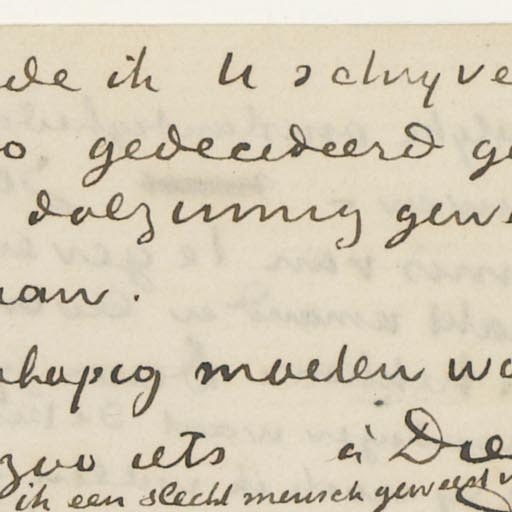 de ik U schryve
gedecideerd ge
dolzinnig gew
aan.
moeten wa
zoo iets à Die
ik een slecht mensch geweest